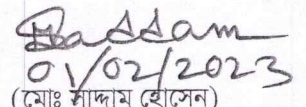 Saddam
01/02/2023
(মোঃ সাদ্দাম হোসেন)